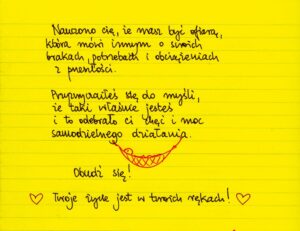 Nauczono cię, że masz być ofiarą,
która mówi innym o swoich
brakach, potrzebach i obciążeniach
z przeszłości.
Przyzwyczaiłeś się do myśli,
że taki właśnie jesteś
i to odebrało ci chęci i moc
samodzielnego działania.
Obudź się!
Twoje życie jest w twoich rękach!